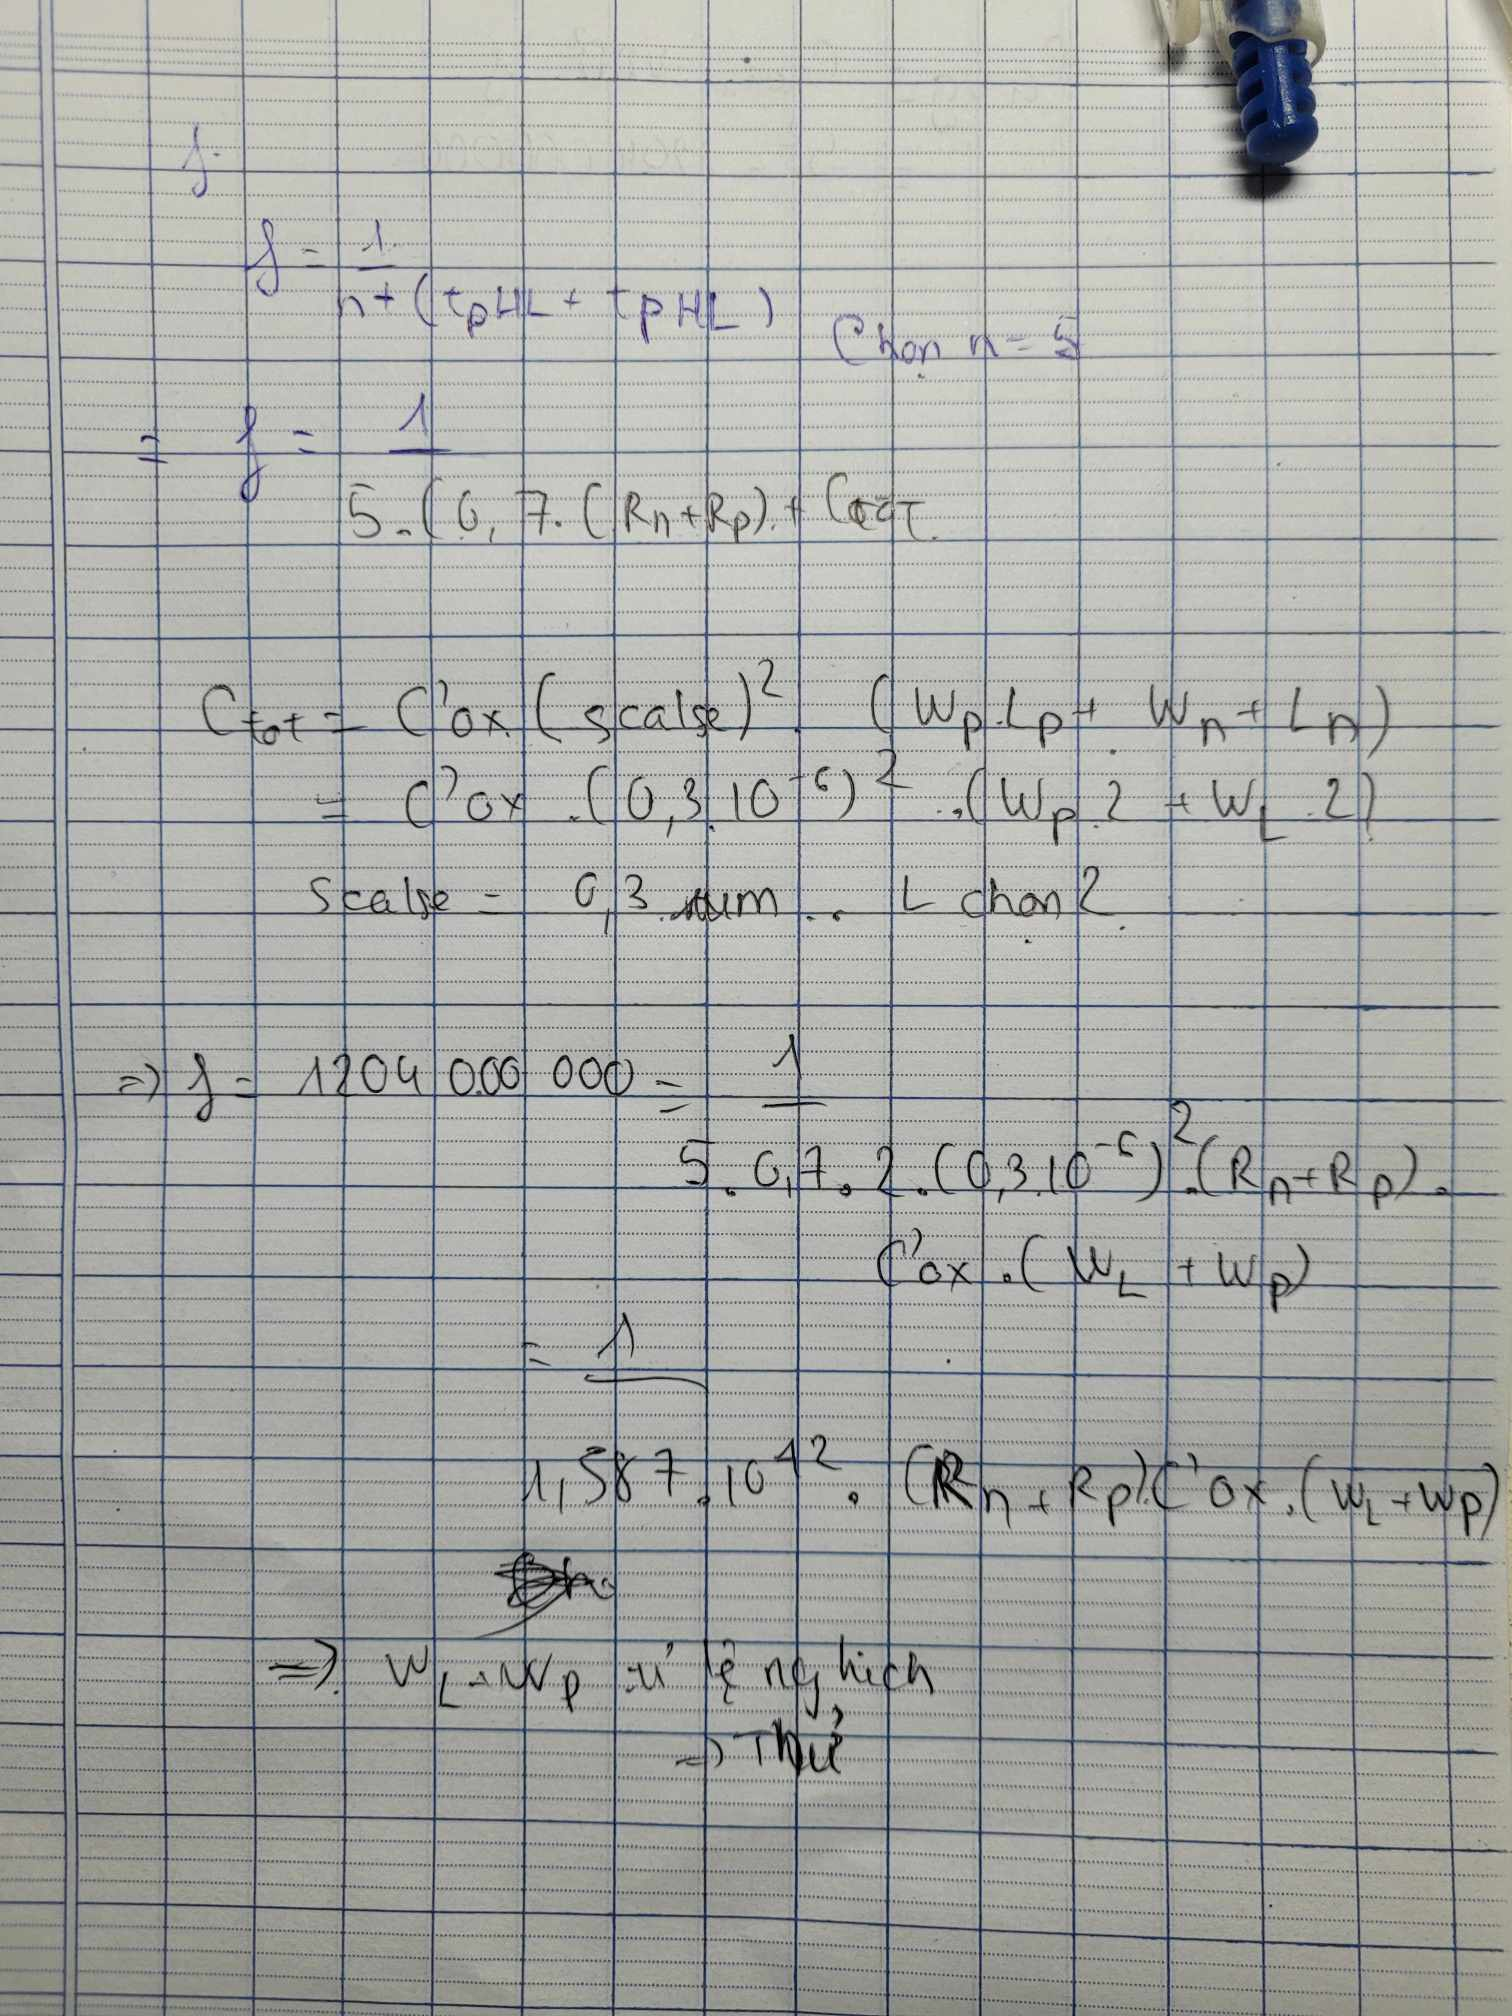 f
f = 1 / n + (tpHL + tpHL)
Chọn n = 5
= f = 1 / 5.(0,7.(Rn+Rp).+ Ctot
Ctot = C'ox (scalse)². (Wp.Lp + Wn + Ln)
= C'ox .(0,3.10⁻⁶)² .(Wp.2 + WL.2)
Scalse = 0,3 mum .. L chọn 2.
=> f = 1204 000 000 = 1 / 5.0,7.2.(0,3.10⁻⁶)².(Rn+Rp).
C'ox.(WL + Wp)
= 1 / 1,587.10⁻¹².(Rn+Rp).C'ox.(WL+Wp)
=> WL + Wp tỉ lệ nghich
=> Thử